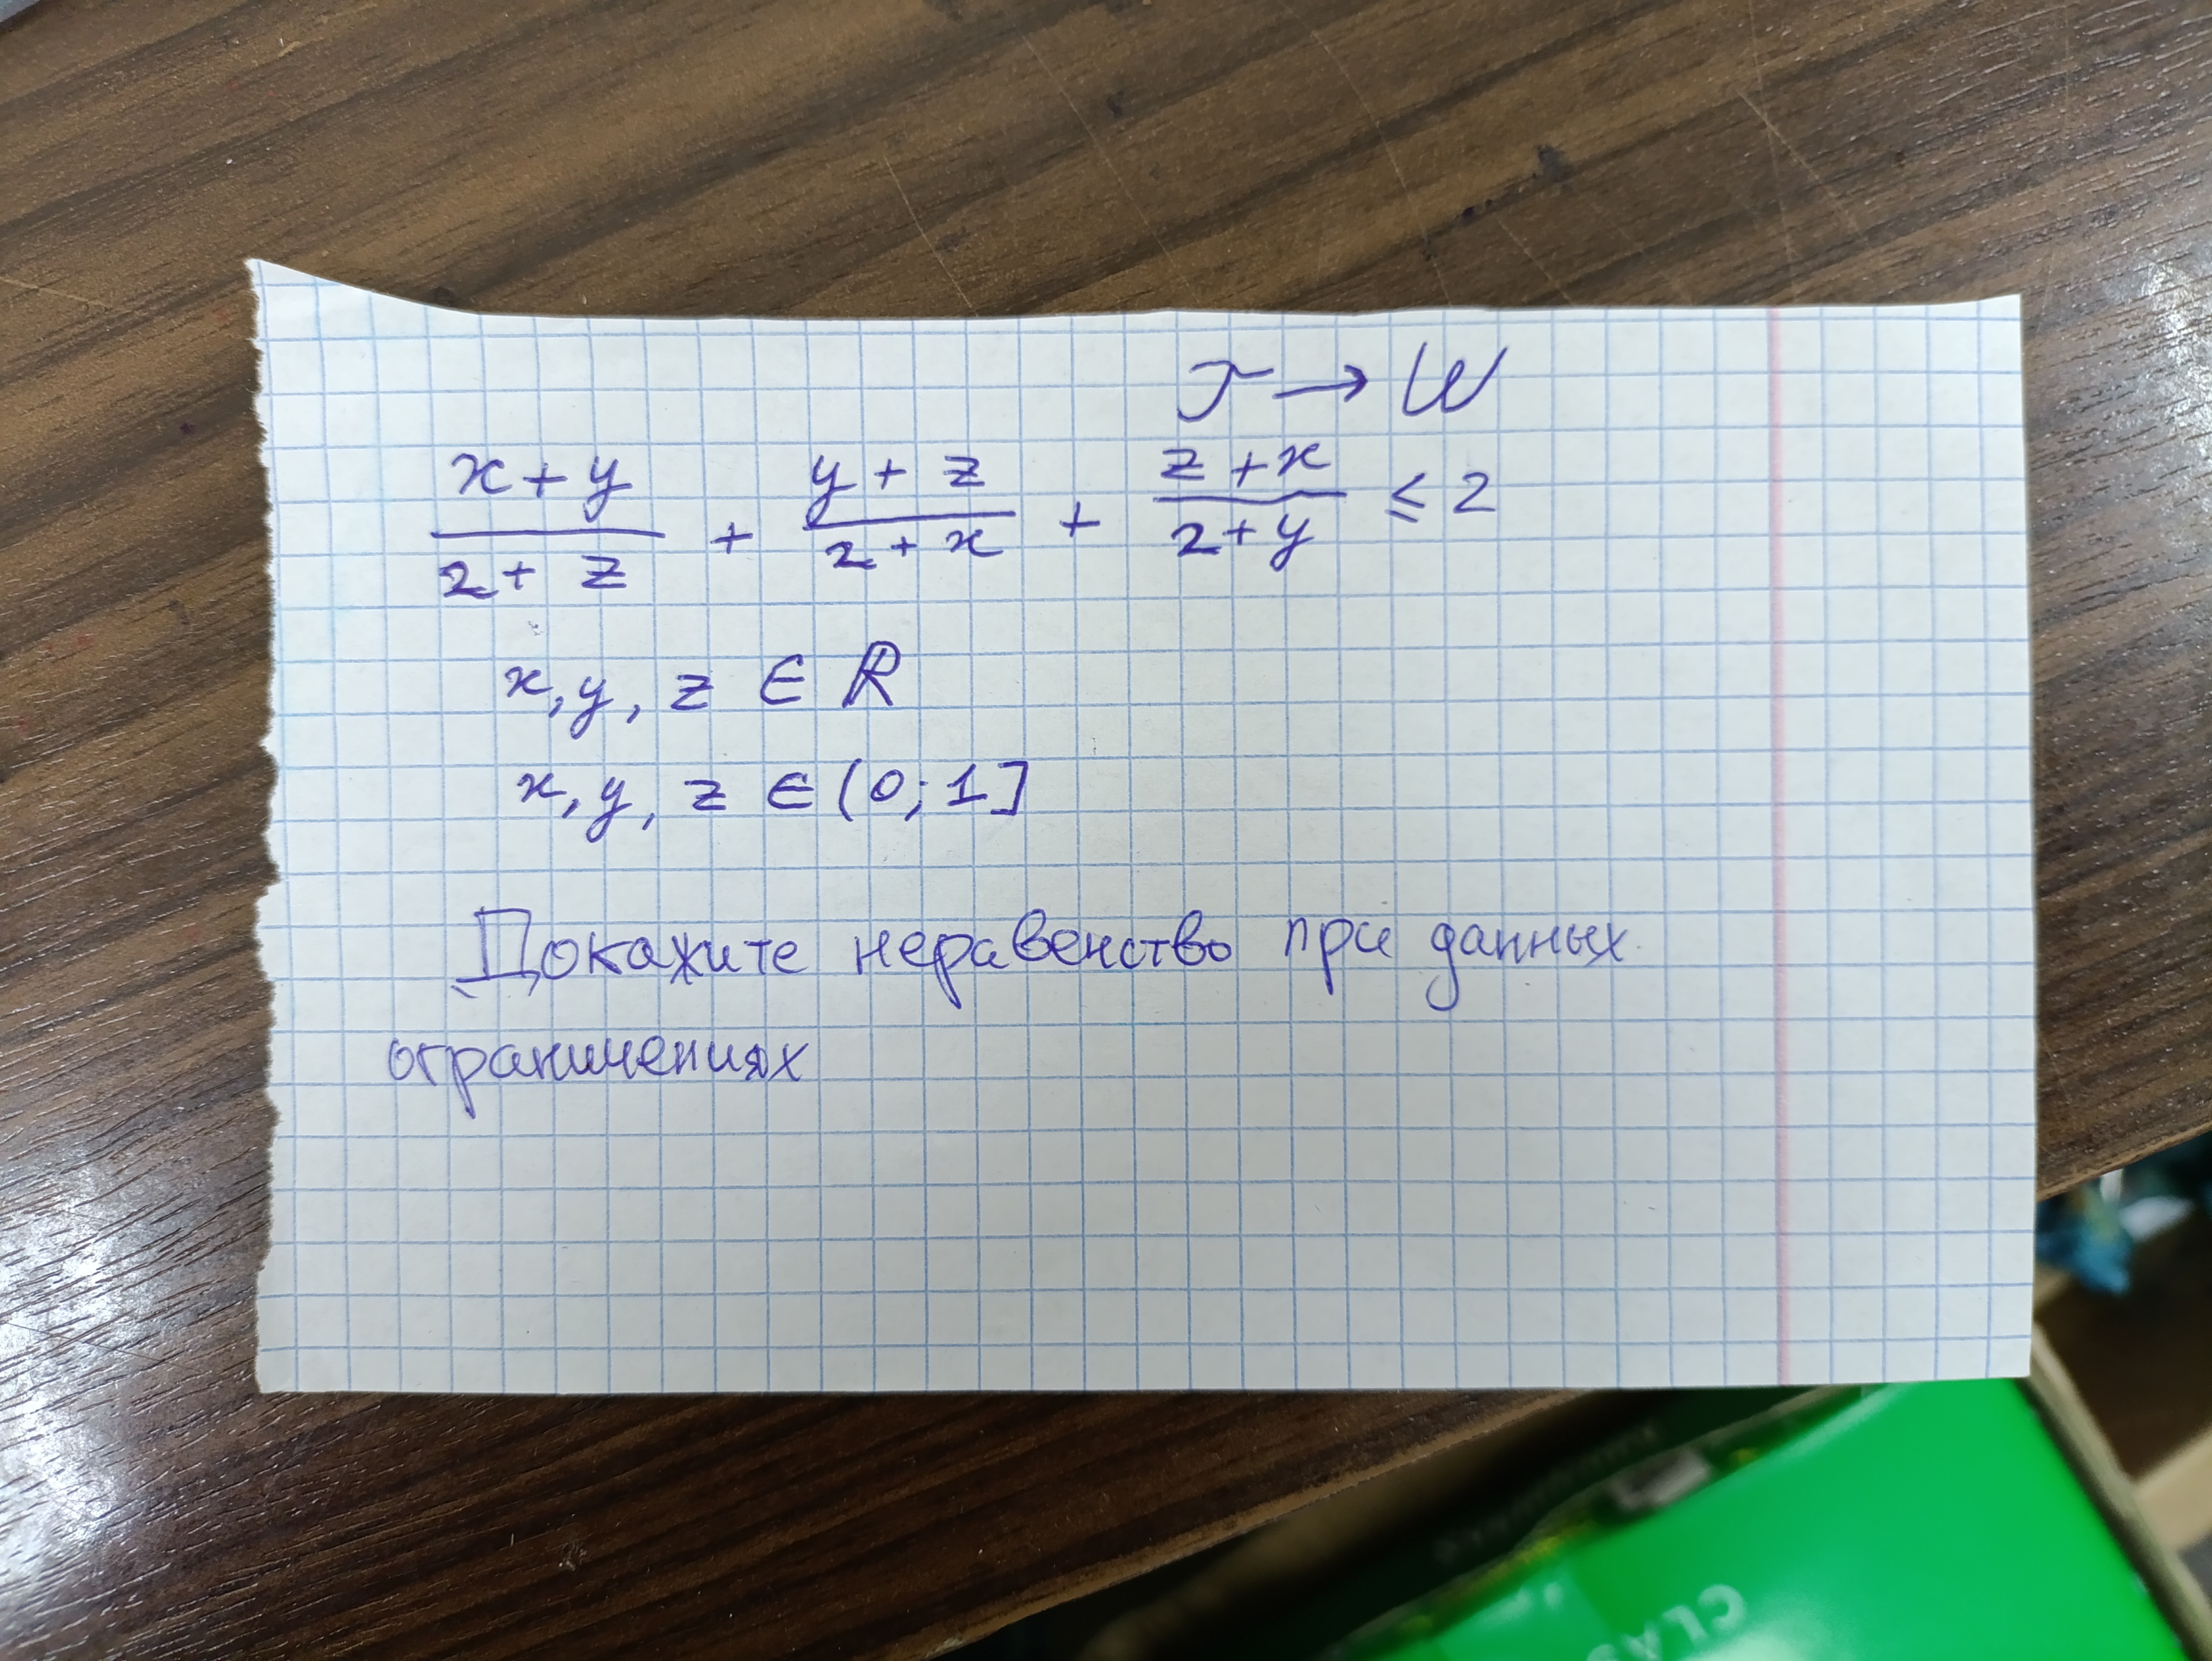 T → W
x+y/2+z + y+z/2+x + z+x/2+y ≤ 2
x, y, z ∈ ℝ
x, y, z ∈ (0; 1]
Докажите неравенство при данных
ограничениях
CLAS